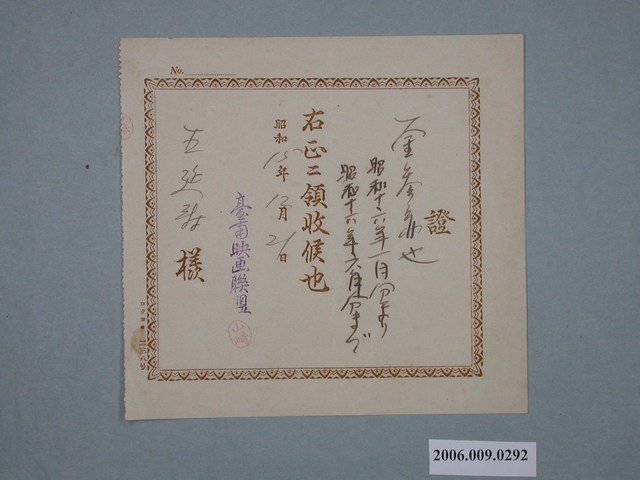 No.
證
一金参円也
昭和十六年一月分ヨリ
昭和十六年六月分まで
右正ニ領收候也
昭和15年12月21日
臺南映画聯盟
山崎
様
2006.009.0292